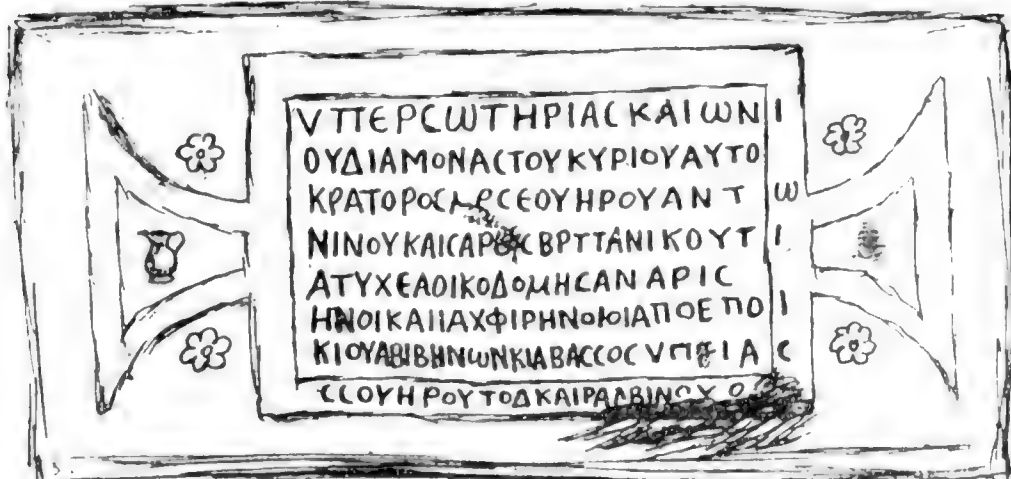 ΥΠΕΡϹΩΤΗΡΙΑϹΚΑΙΩΝΙ
ΟΥΔΙΑΜΟΝΑϹΤΟΥΚΥΡΙΟΥΑΥΤΟ
ΚΡΑΤΟΡΟϹ ϹΕΟΥΗΡΟΥΑΝΤΩ
ΝΙΝΟΥΚΑΙϹΑΡΟϹΒΡΤΤΑΝΙΚΟΥΤΙ
ΑΤΥΧΕΑΟΙΚΟΔΟΜΗϹΑΝΑΡΙϹ
ΗΝΟΙΚΑΙΙΑΧΦΙΡΗΝΟΙΟΙΑΠΟΕΠΟΙ
ΚΙΟΥΑΒΙΒΗΝΩΝΚΙΑΒΑϹϹΟϹΥΠ ΙΑϹ
ϹϹΟΥΗΡΟΥΤΟΔΚΑΙΡΑΛΒΙΝΟΥ